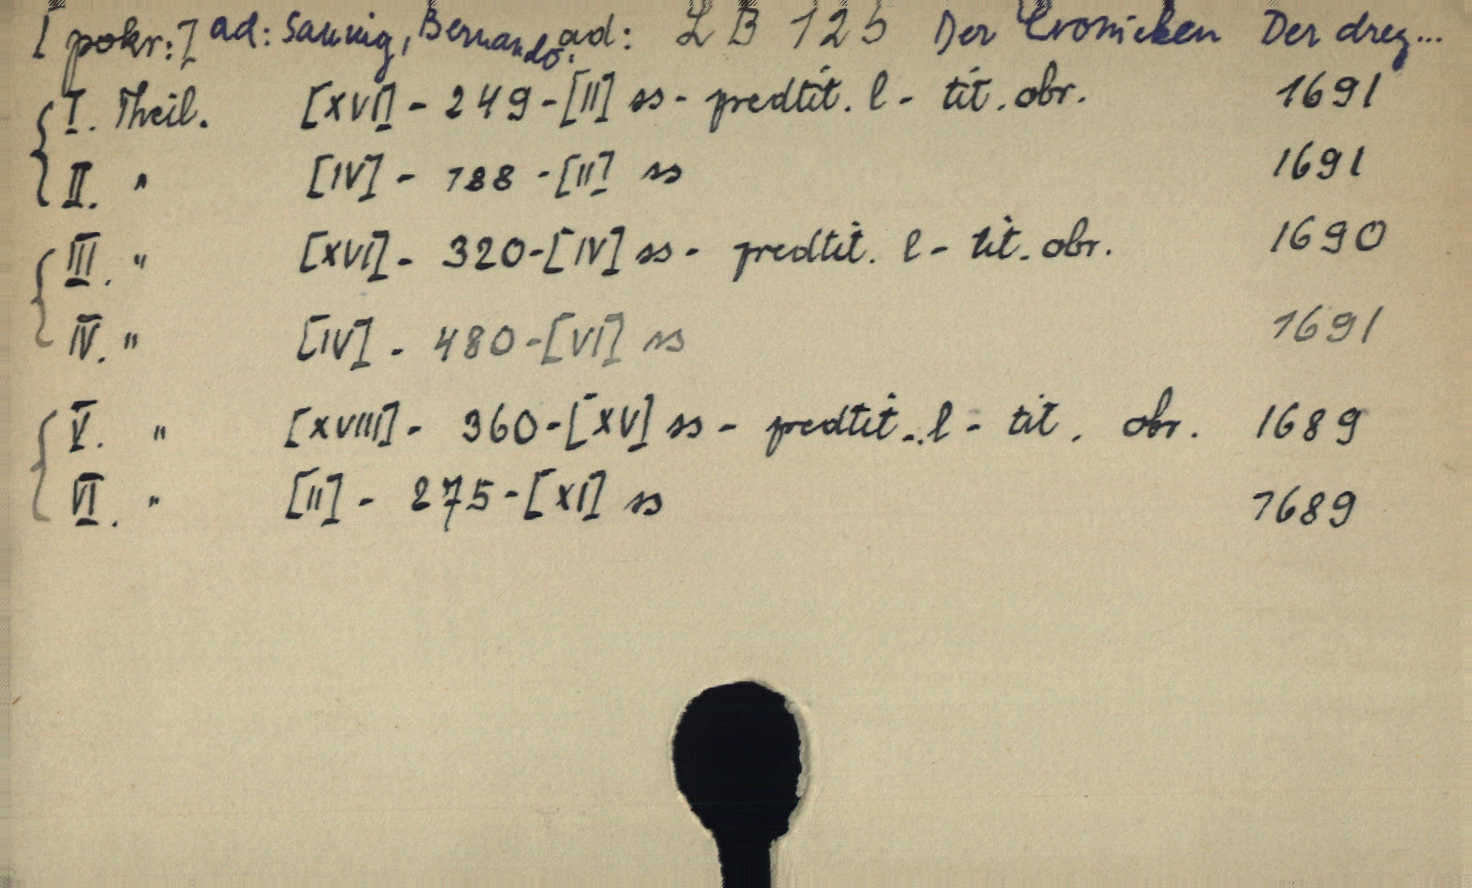 [pokr:] ad: Sannig, Bernardo. ad: LB 125 Der Cronicken Der drey...
I. Theil. [XVI] - 249 - [II] ss - predtit. l - tit. obr. 1691
II. " [IV] - 188 - [II] ss 1691
III. " [XVI] - 320 - [IV] ss - predtit. l - tit. obr. 1690
IV. " [IV] - 480 - [VI] ss 1691
V. " [XVIII] - 360 - [XV] ss - predtit. l - tit. obr. 1689
VI. " [II] - 275 - [XI] ss 1689